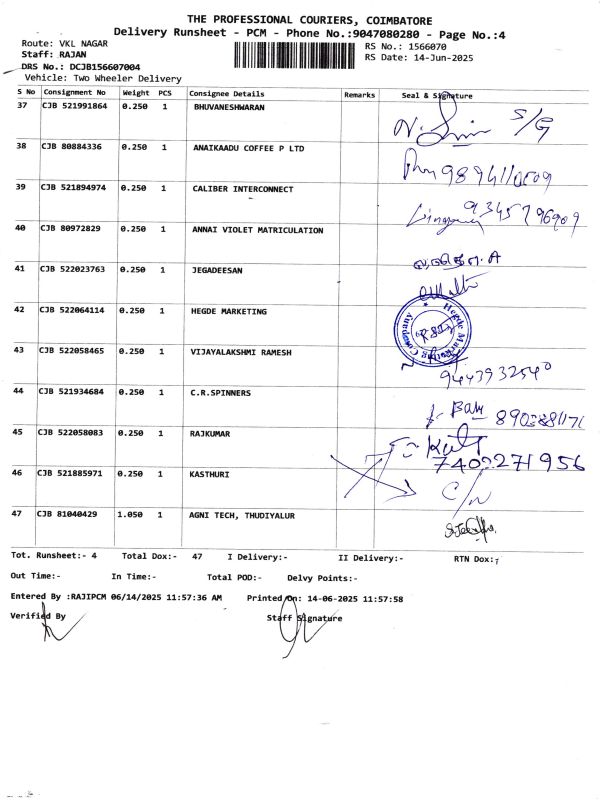 THE PROFESSIONAL COURIERS, COIMBATORE
Delivery Runsheet - PCM - Phone No.:9047080280 - Page No.:4
Route: VKL NAGAR
RS No.: 1566070
Staff: RAJAN
RS Date: 14-Jun-2025
DRS No.: DCJB156607004
Vehicle: Two Wheeler Delivery
S No Consignment No Weight PCS Consignee Details Remarks Seal & Signature
37 CJB 521991864 0.250 1 BHUVANESHWARAN S/G
38 CJB 80884336 0.250 1 ANAIKAADU COFFEE P LTD
39 CJB 521894974 0.250 1 CALIBER INTERCONNECT 9345796909
40 CJB 80972829 0.250 1 ANNAI VIOLET MATRICULATION
41 CJB 522023763 0.250 1 JEGADEESAN
42 CJB 522064114 0.250 1 HEGDE MARKETING Hegde Marketing Company
43 CJB 522058465 0.250 1 VIJAYALAKSHMI RAMESH 9443932540
44 CJB 521934684 0.250 1 C.R.SPINNERS
45 CJB 522058083 0.250 1 RAJKUMAR 7402271956
46 CJB 521885971 0.250 1 KASTHURI C/N
47 CJB 81040429 1.050 1 AGNI TECH, THUDIYALUR
Tot. Runsheet:- 4 Total Dox:- 47 I Delivery:- II Delivery:- RTN Dox:-
Out Time:- In Time:- Total POD:- Delvy Points:-
Entered By :RAJIPCM 06/14/2025 11:57:36 AM Printed On: 14-06-2025 11:57:58
Verified By Staff Signature